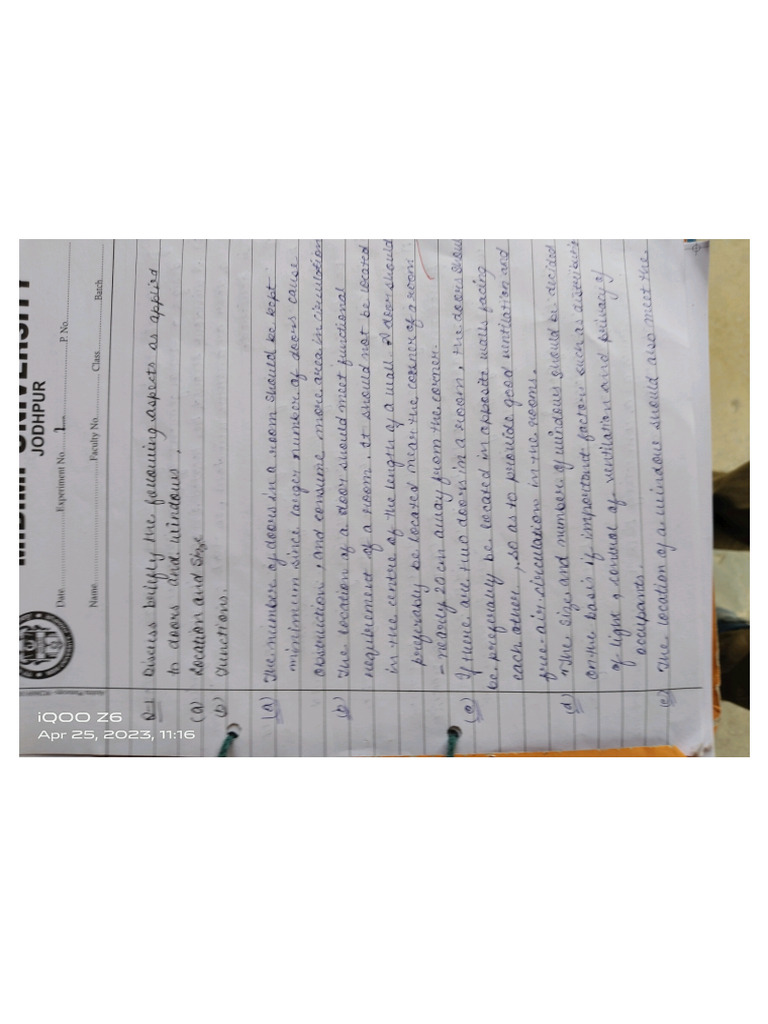 UNIVERSITY
JODHPUR
Date Experiment No. 2 P. No.
Name Faculty No. Class Batch
Q-1 Discuss briefly the following aspects as applied
to doors and windows.
(a) Location and Size
(b) Functions.
(a) The number of doors in a room should be kept
minimum since larger number of doors cause
obstruction, and consume more area in circulation
(b) The location of a door should meet functional
requirement of a room. It should not be located
in the centre of the length of a wall. A door should
preferably be located near the corner of a room
- nearly 20 cm away from the corner.
(c) If there are two doors in a room, the doors shou
be preferably be located in opposite walls facing
each other, so as to provide good ventilation and
free air circulation in the rooms.
(d) The size and number of windows should be decided
on the basis if important factors such as distributio
of light, control of ventilation and privacy of
occupants.
(e) The location of a window should also meet the
iQOO Z6
Apr 25, 2023, 11:16